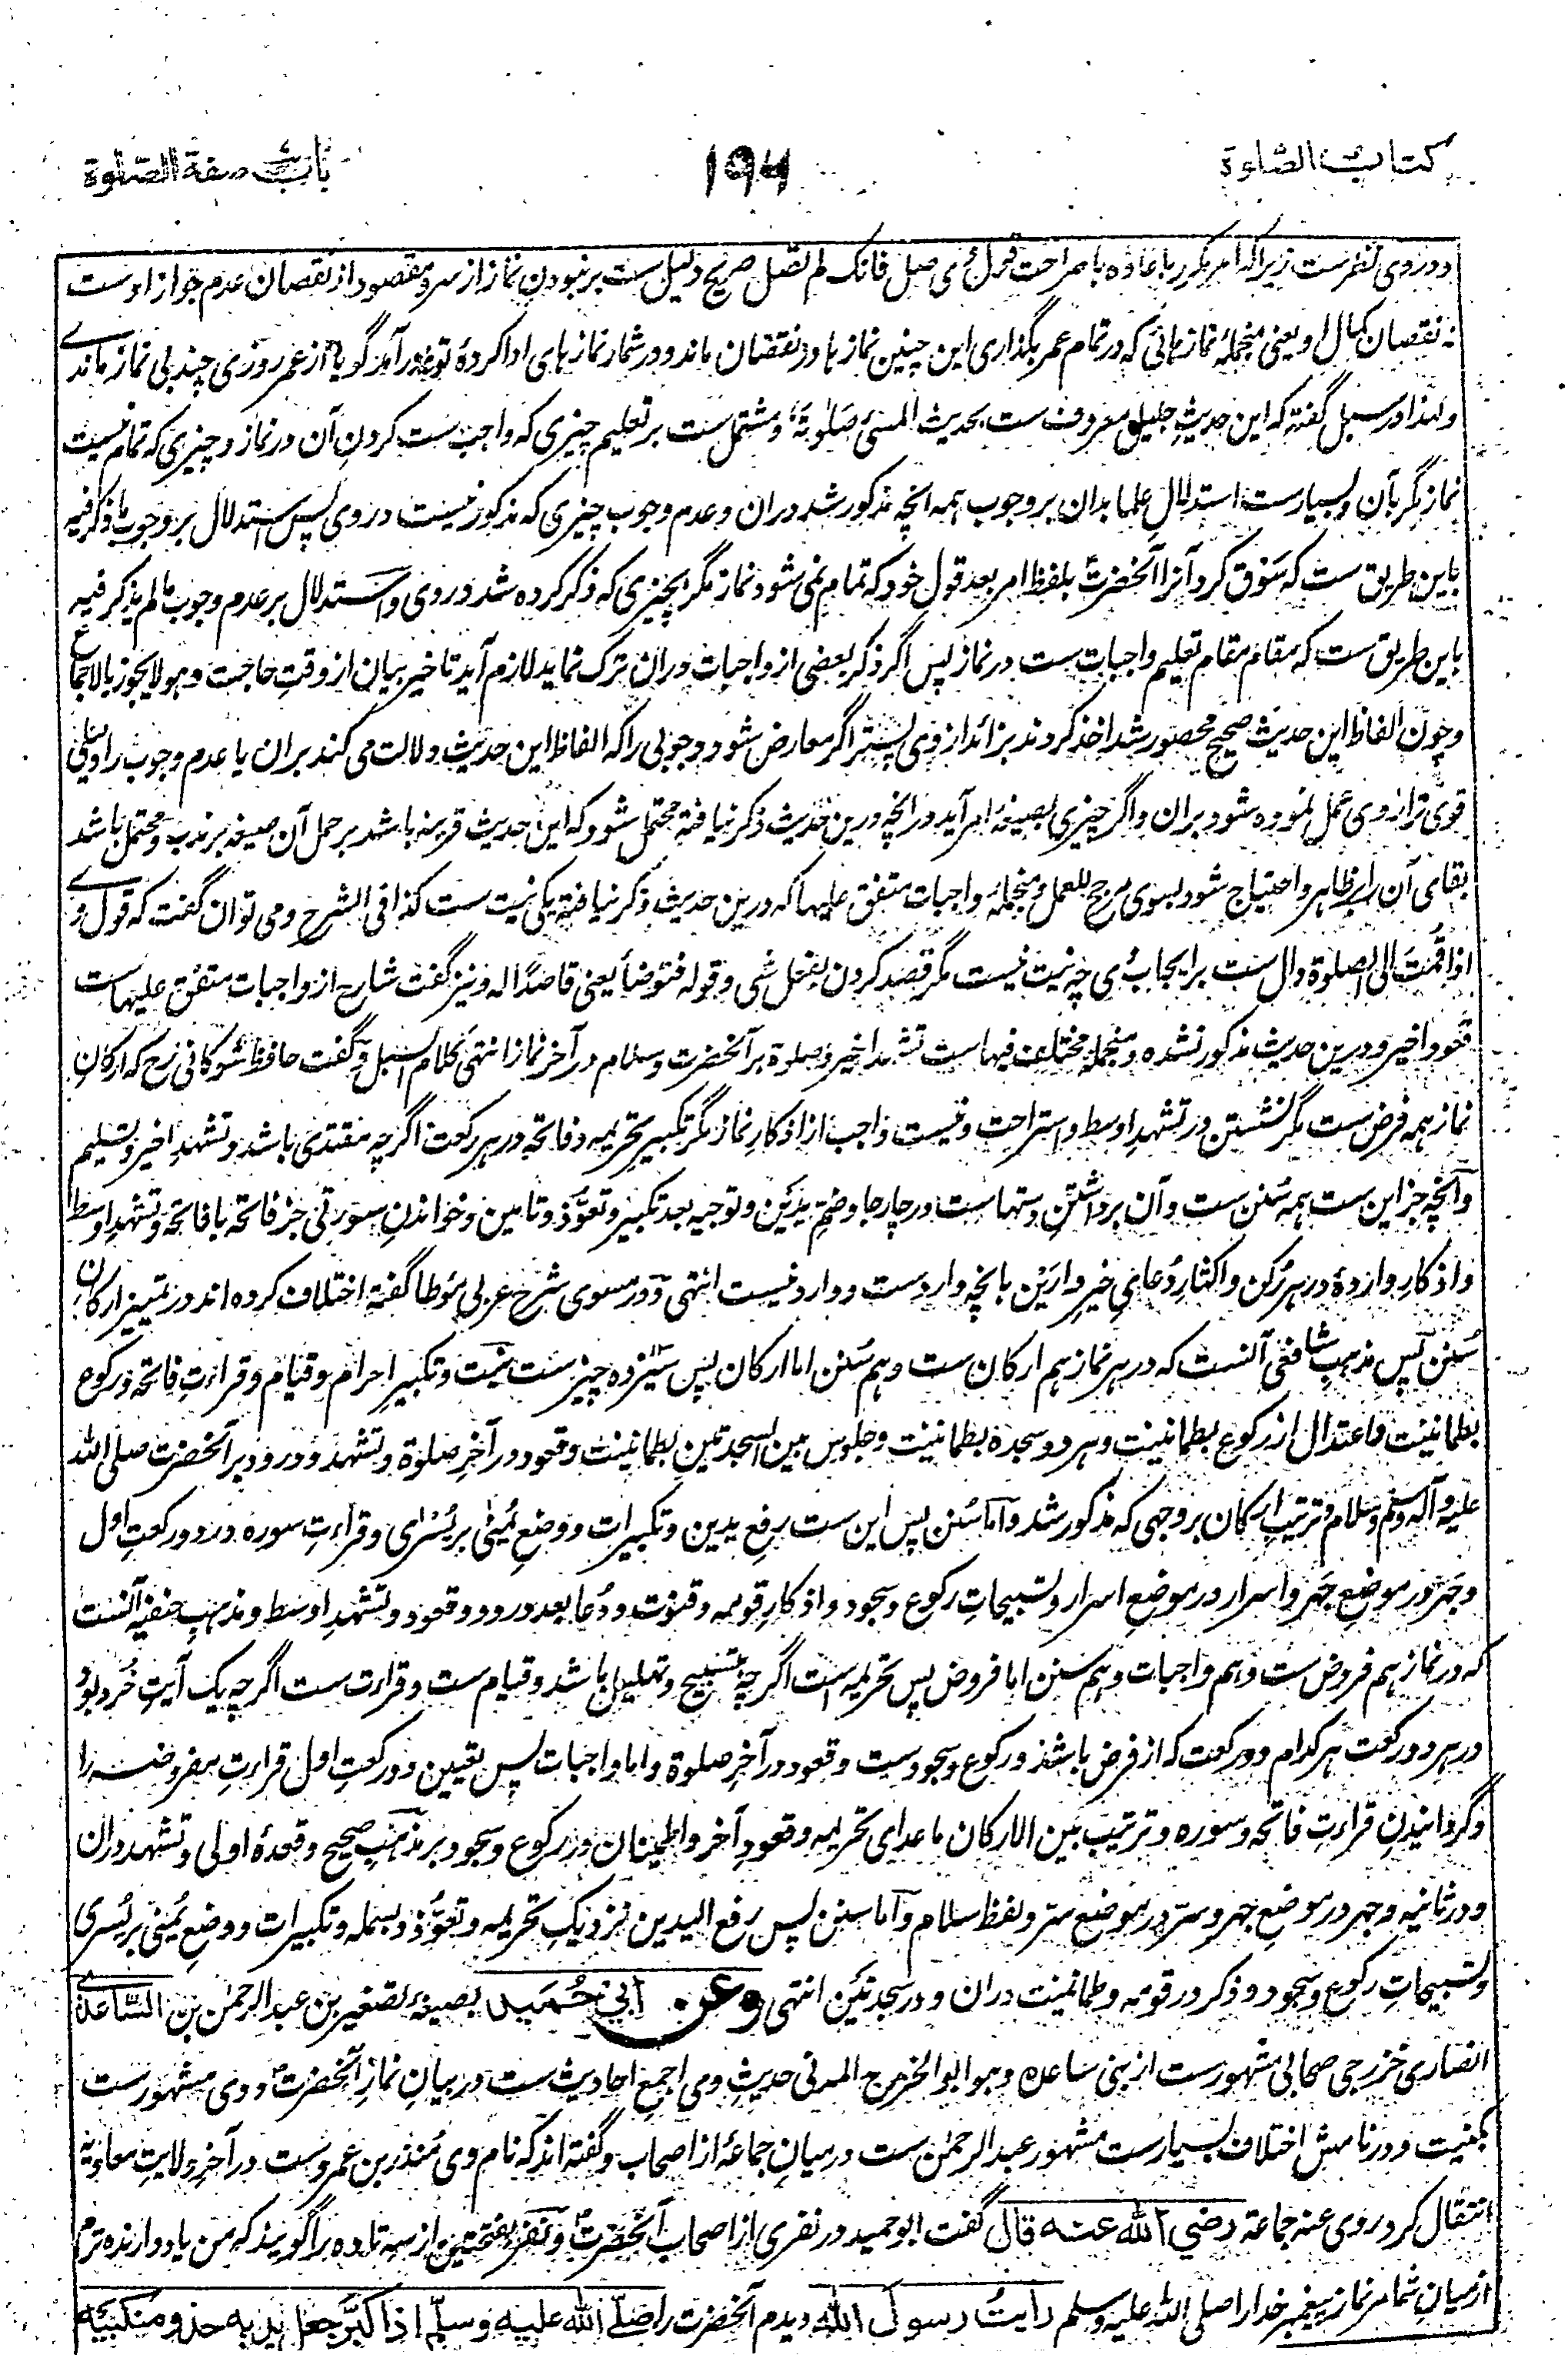 کتاب الصّلوة
۱۹۶
باب صفة الصّلوة
ودروی نظرست زیراکه امر مکرر باعاده باصراحت قول وی صل فانک لم تصل صریح دلیل ست بر نبودن نماز از سر و مقصود از نقصان عدم جواز اوست
نه نقصان کمال او یعنی منجملهٔ نمازهائی که در تمام عمر بگذاری این چنین نماز با در نقصان ماند و در شمار نمازهای ادا کردهٔ تو نه درآمد گویا از عمر روزی چند بی نماز ماندے
ولهذا در سبل گفته که این حدیث جلیل معروف ست بحدیث المسئ صَلٰوتَه ومشتمل ست بر تعلیم چیزی که واجب ست کردن آن در نماز و چیزی که تمام نیست
نماز مگر بآن وبسیارست استدلال علما بدان بر وجوب همه انچه مذکور شد دران وعدم وجوب چیزی که مذکور نیست در وی پس استدلال بر وجوب ما ذکر فیه
باین طریق ست که سَوق کرد آنرا آنحضرت بلفظ امر بعد قول خود که تمام نمی شود نماز مگر بچیزی که ذکر کرده شد در وی واستدلال بر عدم وجوب ما لم یذکر فیه
باین طریق ست که مقام مقام تعلیم واجبات ست در نماز پس اگر ذکر بعضی از واجبات دران ترک نماید لازم آید تاخیر بیان از وقتِ حاجت وهو لا یجوز بالاجماع
وچون الفاظ این حدیث صحیح محصور شد اخذ کردند بزائد از وی پستر اگر معارض شود وجوبی را که الفاظ این حدیث دلالت می کند بران یا عدم وجوب را دلیلی
قوی تر از وی عمل نموده شود بران واگر چیزی بصیغهٔ امر آید در انچه درین حدیث ذکر نیافته محتمل شود که این حدیث قرینه باشد بر حمل آن صیغه بر ندب ومحتمل باشد
بقای آن را بر ظاهر واحتیاج شود بسوی مرجح للعمل ومنجملهٔ واجبات متفق علیها که درین حدیث ذکر نیافته یکی نیت ست کذا فی الشرح ومی توان گفت که قول وے
اذا قُمتَ الی الصلوة دال ست بر ایجاب وی چه نیت نیست مگر قصد کردن بفعل شی وقوله فتوضأ یعنی قاصدًا له ونیز گفت شارح از واجباتِ متفق علیهاست
قعود اخیر ودرین حدیث مذکور نشده ومنجملهٔ مختلف فیها است تشهد اخیر وصلوة بر آنحضرت وسلام در آخر نماز انتهی کلام السبل وگفت حافظ شوکانی رح که ارکانِ
نماز همه فرض ست مگر نشستن در تشهدِ اوسط واستراحت ونیست واجب از اذکارِ نماز مگر تکبیر تحریمه وفاتحه در هر رکعت اگرچه مقتدی باشد وتشهدِ اخیر وتسلیم
وآنچه جز این ست همه سُنن ست وآن برداشتنِ دستهاست در چار جا وضمِ یدَین وتوجیه بعد تکبیر وتعوُّذ وتامین وخواندنِ سورتی جز فاتحه با فاتحه وتشهدِ اوسط
واذکارِ واردهٔ در هر رُکن واکثارِ دُعای خیرِ دارَیْن بانچه واردست ووارد نیست انتهی ودر مسوی شرح عربی مؤطا گفته اختلاف کرده اند در تمییز ارکان
سُنن پس مذهب شافعی آنست که در هر نماز هم ارکان ست وهم سُنن اما ارکان پس سیزده چیز ست نیت وتکبیرِ احرام وقیام وقراءتِ فاتحه ورکوع
بطمانینت واعتدال از رکوع بطمانینت وهر دو سجده بطمانینت وجلوس بین السجدتین بطمانینت وقعود در آخرِ صلوة وتشهد ودرود بر آنحضرت صلی الله
علیه وآله وسلم وسلام وترتیبِ ارکان بر وجهی که مذکور شد واما سُنن پس این ست رفع یدین وتکبیرات ووضعِ یُمنٰی بر یُسرٰی وقراءتِ سوره در دو رکعتِ اول
وجهر در موضعِ جهر واسرار در موضعِ اسرار وتسبیحاتِ رکوع وسجود واذکارِ قومه وقنوت ودُعا بعد درود وقعود وتشهدِ اوسط ومذهبِ حنفیه آنست
که در نماز هم فروض ست وهم واجبات وهم سُنن اما فروض پس تحریمه است اگرچه بتسبیح وتهلیل باشد وقیام ست وقرارت ست اگرچه یک آیتِ خُرد بود
در هر دو رکعت هر کدام دو رکعت که از فرض باشد ورکوع وسجودست وقعود در آخرِ صلوة واما واجبات پس تعیین دو رکعتِ اول قراءتِ مفروضه را
وگردانیدنِ قراءتِ فاتحه وسوره وترتیب بین الارکان ماعدای تحریمه وقعودِ آخر واطمینان در رکوع وسجود بر مذهبِ صحیح وقعدهٔ اولی وتشهد دران
ودر ثانیه وجهر در موضعِ جهر وسرّ در موضعِ سرّ ولفظِ سلام واما سنن پس رفع الیدین نزدیکِ تحریمه وتعوُّذ وبسمله وتکبیرات ووضعِ یُمنی بر یُسری
وتسبیحاتِ رکوع وسجود وذکر در قومه وطمانینت دران ودر سجدتَین انتهی وعن ابی حُمَید بصیغهٔ تصغیر بن عبد الرحمٰن بن السّاعدے
انصاری خزرجی صحابی مشهورست از بنی ساعده وهو ابو الخزرج المدنی حدیثِ وی اجمعِ احادیث ست در بیانِ نمازِ آنحضرت ووی مشهورست
بکنیت ودر نامش اختلاف بسیارست مشهور عبد الرحمٰن ست در میانِ جماعهٔ از اصحاب وگفته اند که نام وی مُنذر بن عمروست در آخرِ ولایتِ معاویه
انتقال کرد روی عنه جماعة رضي الله عنه قال گفت ابوحمید در نفری از اصحاب آنحضرت ونَفَر بفتحتین از سه تا ده را گویند که من یاد دارنده ترم
از میانِ شما مر نماز پیغمبر خدا را صلی الله علیه وسلم رایتُ رسول الله دیدم آنحضرت را صلّے الله علیه وسلّم اذا کبّر جعل یدیه حذو منکبیه